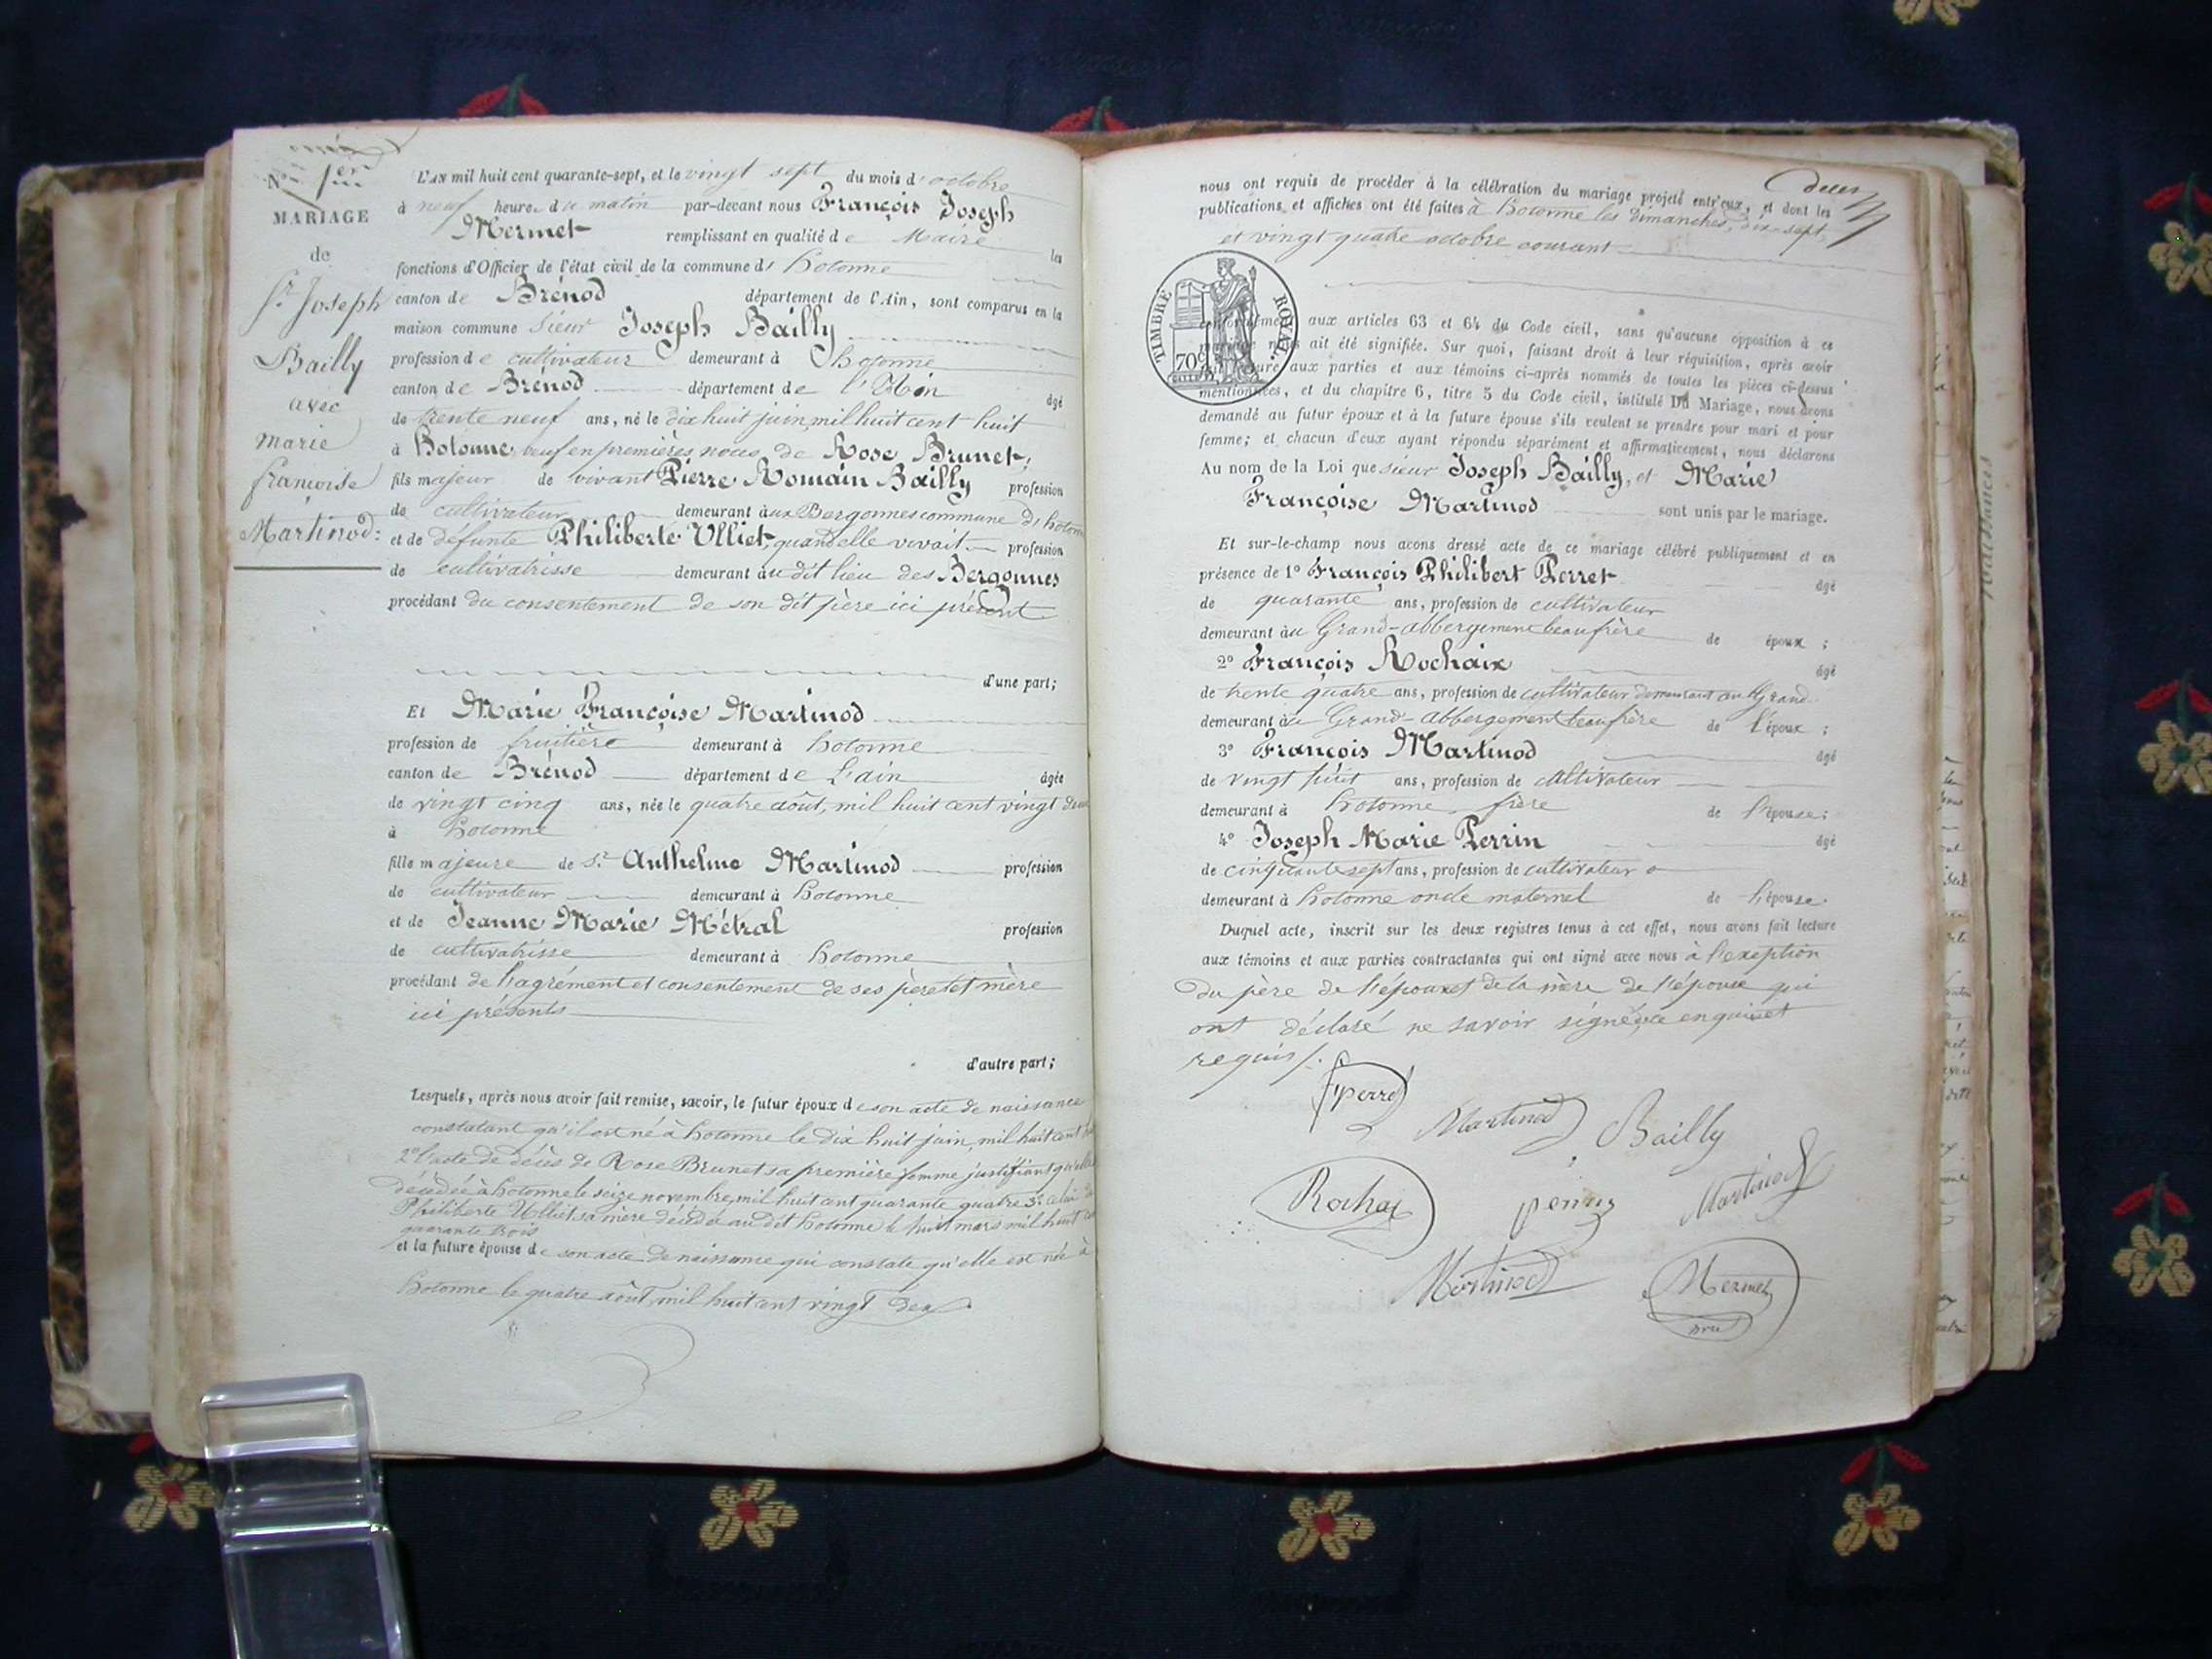 N° 1er
MARIAGE
de
Sr Joseph
Bailly
avec
marie
francoise
Martinod:
L'AN mil huit cent quarante-sept, et le vingt sept du mois d'octobre
à neuf heures du matin par-devant nous François Joseph
Mermet remplissant en qualité de Maire les
fonctions d'Officier de l'état civil de la commune d'hotonne
canton de Brénod département de l'Ain, sont comparus en la
maison commune Sieur Joseph Bailly
profession de cultivateur demeurant à hotonne
canton de Brénod département de l'Ain âgé
de trente neuf ans, né le dix huit juin, mil huit cent huit
à hotonne, veuf en premières noces de Rose Brunet,
fils majeur de vivant Pierre Romain Bailly profession
de cultivateur demeurant aux Bergonnes commune d'hotonne
et de défunte Philiberte Ulliet, quand elle vivait profession
de cultivatrisse demeurant au dit lieu des Bergonnes
procédant du consentement de son dit père ici présent
d'une part;
Et Marie Françoise Martinod
profession de fruitière demeurant à hotonne
canton de Brénod département de L'ain âgée
de vingt cinq ans, née le quatre août, mil huit cent vingt deux
à hotonne
fille majeure de Sr. Anthelme Martinod profession
de cultivateur demeurant à hotonne
et de Jeanne Marie Métral profession
de cultivatrisse demeurant à hotonne
procédant de l'agrément et consentement de ses père et mère
ici présents
d'autre part;
Lesquels, après nous avoir fait remise, savoir, le futur époux de son acte de naissance
constatant qu'il est né à hotonne le dix huit juin, mil huit cent
2° l'acte de décès de Rose Brunet sa première femme justifiant qu'elle
décédée à hotonne le seize novembre, mil huit cent quarante quatre 3° celui
Philiberte Ulliet sa mère décédée au dit hotonne le huit mars mil huit
quarante trois
et la future épouse de son acte de naissance qui constate qu'elle est née à
hotonne le quatre août, mil huit cent vingt deux.
deux
nous ont requis de procéder à la célébration du mariage projeté entr'eux, et dont les
publications et affiches ont été faites à hotonne les dimanches, dix-sept,
et vingt quatre octobre courant
TIMBRE ROYAL.
70c
conformément aux articles 63 et 64 du Code civil, sans qu'aucune opposition à ce
mariage nous ait été signifiée. Sur quoi, faisant droit à leur réquisition, après avoir
lecture aux parties et aux témoins ci-après nommés de toutes les pièces ci-dessus
mentionnées, et du chapitre 6, titre 5 du Code civil, intitulé DU Mariage, nous avons
demandé au futur époux et à la future épouse s'ils veulent se prendre pour mari et pour
femme; et chacun d'eux ayant répondu séparément et affirmativement, nous déclarons
Au nom de la Loi que sieur Joseph Bailly, et Marie
Françoise Martinod sont unis par le mariage.
Et sur-le-champ nous avons dressé acte de ce mariage célébré publiquement et en
présence de 1° François Philibert Perret âgé
de quarante ans, profession de cultivateur
demeurant au Grand-abbergement beaufrère de époux ;
2° François Rochaix âgé
de trente quatre ans, profession de cultivateur demeurant au Grand
demeurant au Grand-abbergement beaufrère de l'époux ;
3° François Martinod âgé
de vingt huit ans, profession de cultivateur
demeurant à hotonne frère de l'épouse;
4° Joseph Marie Perrin âgé
de cinquante sept ans, profession de cultivateur
demeurant à hotonne oncle maternel de l'épouse.
Duquel acte, inscrit sur les deux registres tenus à cet effet, nous avons fait lecture
aux témoins et aux parties contractantes qui ont signé avec nous à l'exeption
du père de l'époux et de la mère de l'épouse qui
ont déclaré ne savoir signé, de ce enquis et
requis /.
Martinod Bailly
Rochaix Martinod
Martinod Mermet